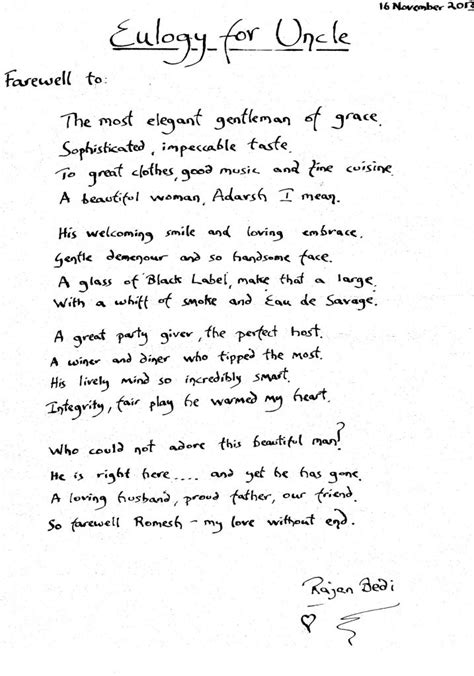 16 November 2013
Eulogy for Uncle
Farewell to:
The most elegant gentleman of grace.
Sophisticated, impeccable taste.
To great clothes, good music and fine cuisine.
A beautiful woman, Adarsh I mean.
His welcoming smile and loving embrace.
Gentle demenour and so handsome face.
A glass of Black Label, make that a large.
With a whiff of smoke and Eau de Savage.
A great party giver, the perfect host.
A winer and diner who tipped the most.
His lively mind so incredibly smart.
Integrity, fair play he warmed my heart.
Who could not adore this beautiful man?
He is right here .... and yet he has gone.
A loving husband, proud father, our friend.
So farewell Romesh - my love without end.
Rajan Bedi